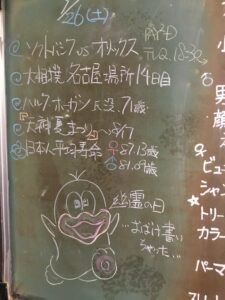 7/26(土)
ソフトバンクvsオリックス
テレQ 18:30〜
大相撲名古屋場所14日目
ハルク・ホーガン氏没71歳
天神夏まつり〜8/7
日本人平均寿命 ♀87.13歳
♂81.09歳
幽霊の日
…おばけ書い
ちゃった…
男
顔
♀
ビュー
シャン
♂
トリー
カラー
パーマ